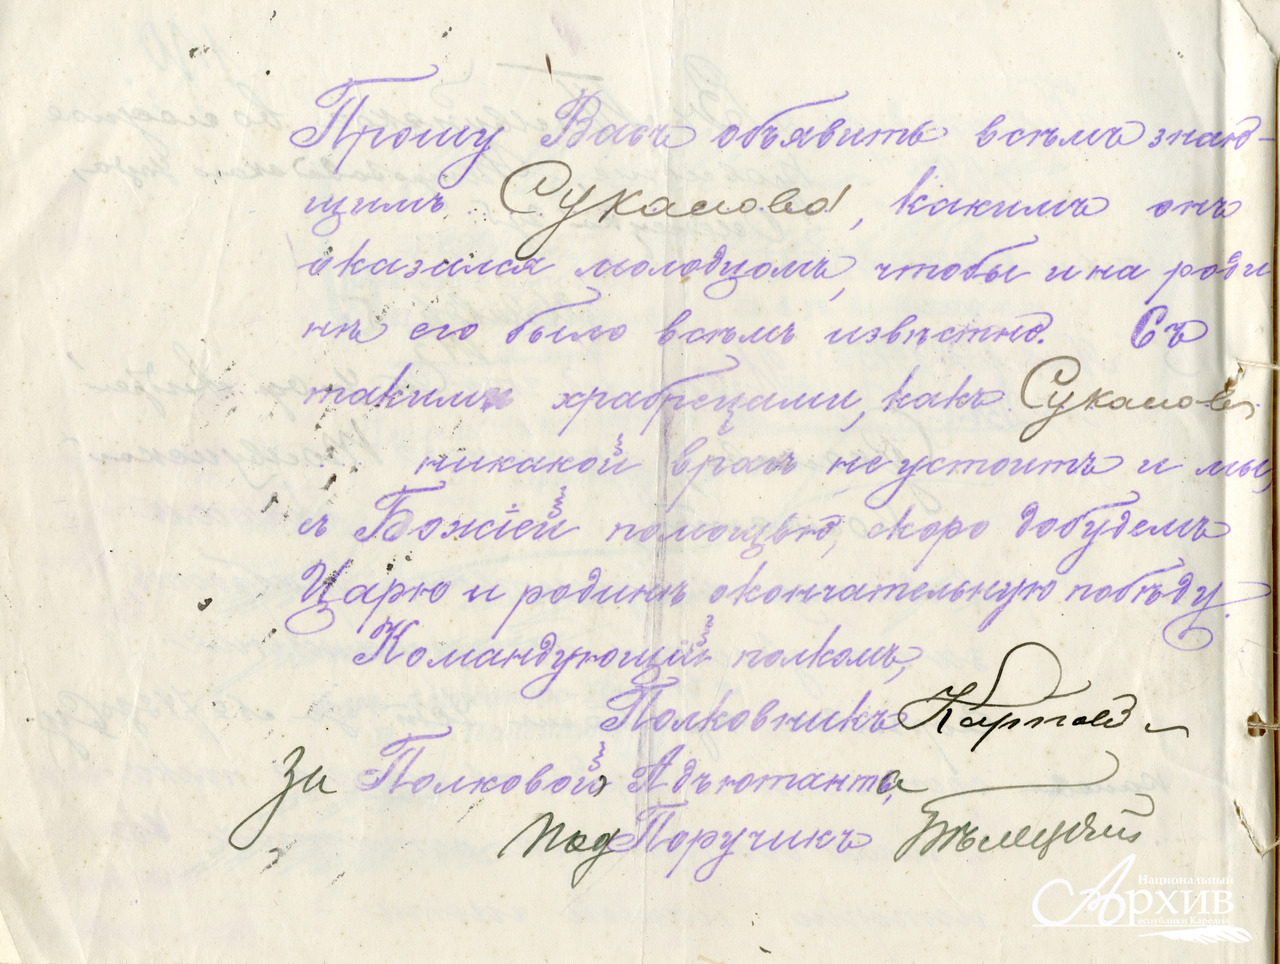 Прошу Васъ объявить всѣмъ знаю-
щимъ Сукалова, какимъ онъ
оказался молодцомъ, чтобы и на роди
нѣ его было всѣмъ извѣстно. Съ
такими храбрецами, какъ Сукаловъ
никакой врагъ не устоитъ и мы,
съ Божіей помощью, скоро добудемъ
Царю и родинѣ окончательную побѣду.
Командующій полкомъ,
Полковникъ Карпов
За Полковой Адъютанта,
ПодПоручикъ
Национальный
Архив
республики Карелия